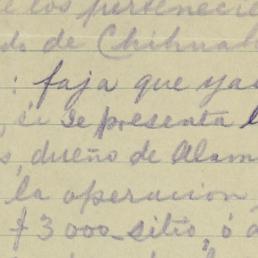 e los pertenecie
do de Chihuah
: faja que ya
, si se presenta l
s, dueño de Alam
la operacion
$3000_ sitio, ó